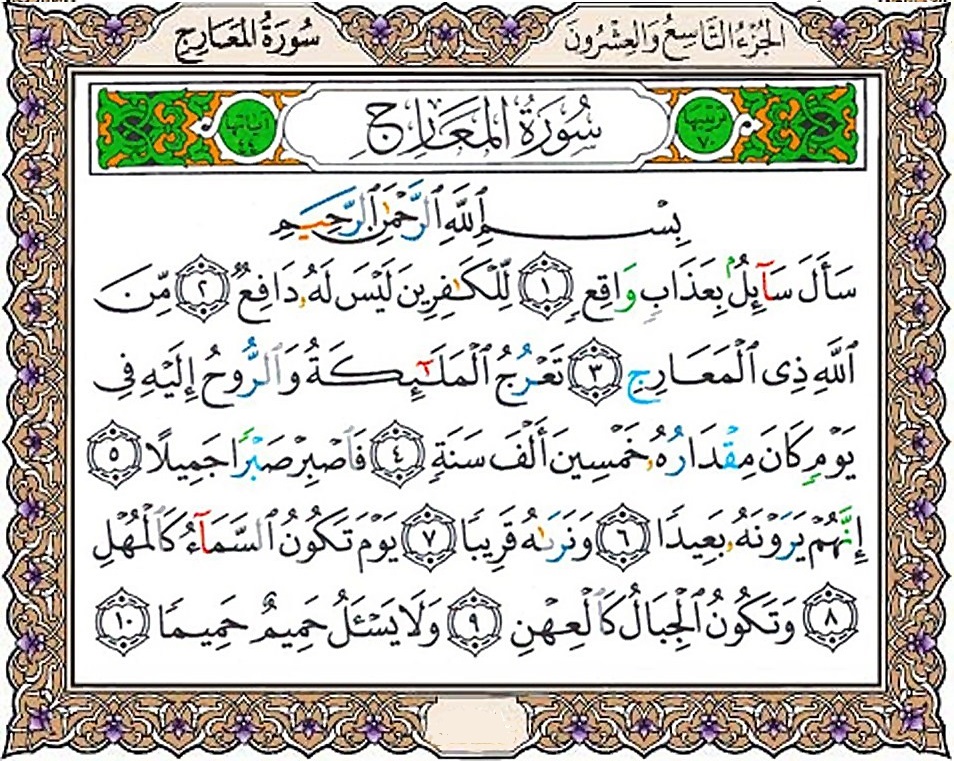 الجُزْءُ التَّاسِعُ وَالعِشْرُونَ
سُورَةُ المَعَارِجِ
ترتيبها ٧٠
سُورَةُ المَعَارِجِ
آياتها ٤٤
بِسْمِ ٱللَّهِ ٱلرَّحْمَٰنِ ٱلرَّحِيمِ
سَأَلَ سَآئِلٌۢ بِعَذَابٍ وَاقِعٍ ١ لِّلْكَٰفِرِينَ لَيْسَ لَهُۥ دَافِعٌ ٢ مِّنَ
ٱللَّهِ ذِى ٱلْمَعَارِجِ ٣ تَعْرُجُ ٱلْمَلَٰٓئِكَةُ وَٱلرُّوحُ إِلَيْهِ فِى
يَوْمٍ كَانَ مِقْدَارُهُۥ خَمْسِينَ أَلْفَ سَنَةٍ ٤ فَٱصْبِرْ صَبْرًا جَمِيلًا ٥
إِنَّهُمْ يَرَوْنَهُۥ بَعِيدًا ٦ وَنَرَىٰهُ قَرِيبًا ٧ يَوْمَ تَكُونُ ٱلسَّمَآءُ كَٱلْمُهْلِ
٨ وَتَكُونُ ٱلْجِبَالُ كَٱلْعِهْنِ ٩ وَلَا يَسْـَٔلُ حَمِيمٌ حَمِيمًا ١٠